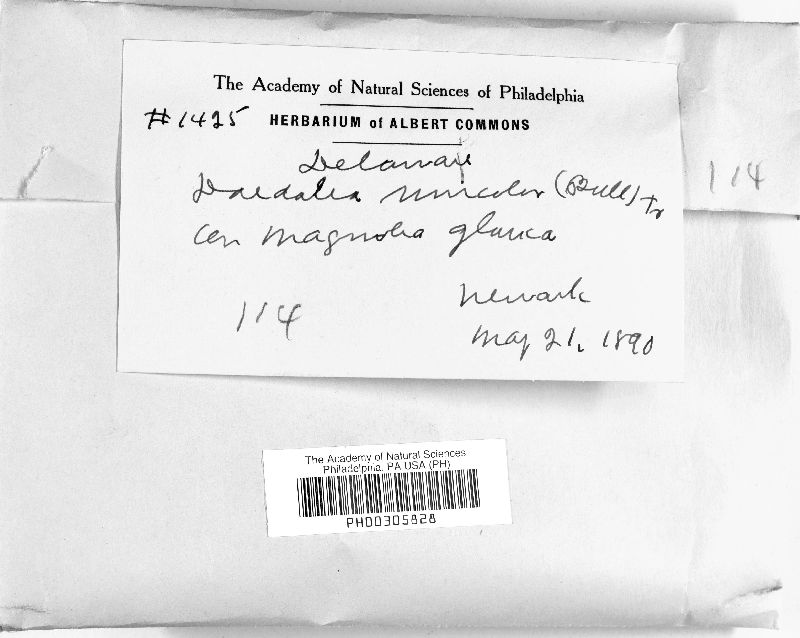 The Academy of Natural Sciences of Philadelphia
#1425 HERBARIUM of ALBERT COMMONS
Delaware
Daedalea unicolor (Bull) Fr
on Magnolia glauca
114
Newark
May 21, 1890
114
The Academy of Natural Sciences
Philadelphia, PA USA (PH)
PH00305828